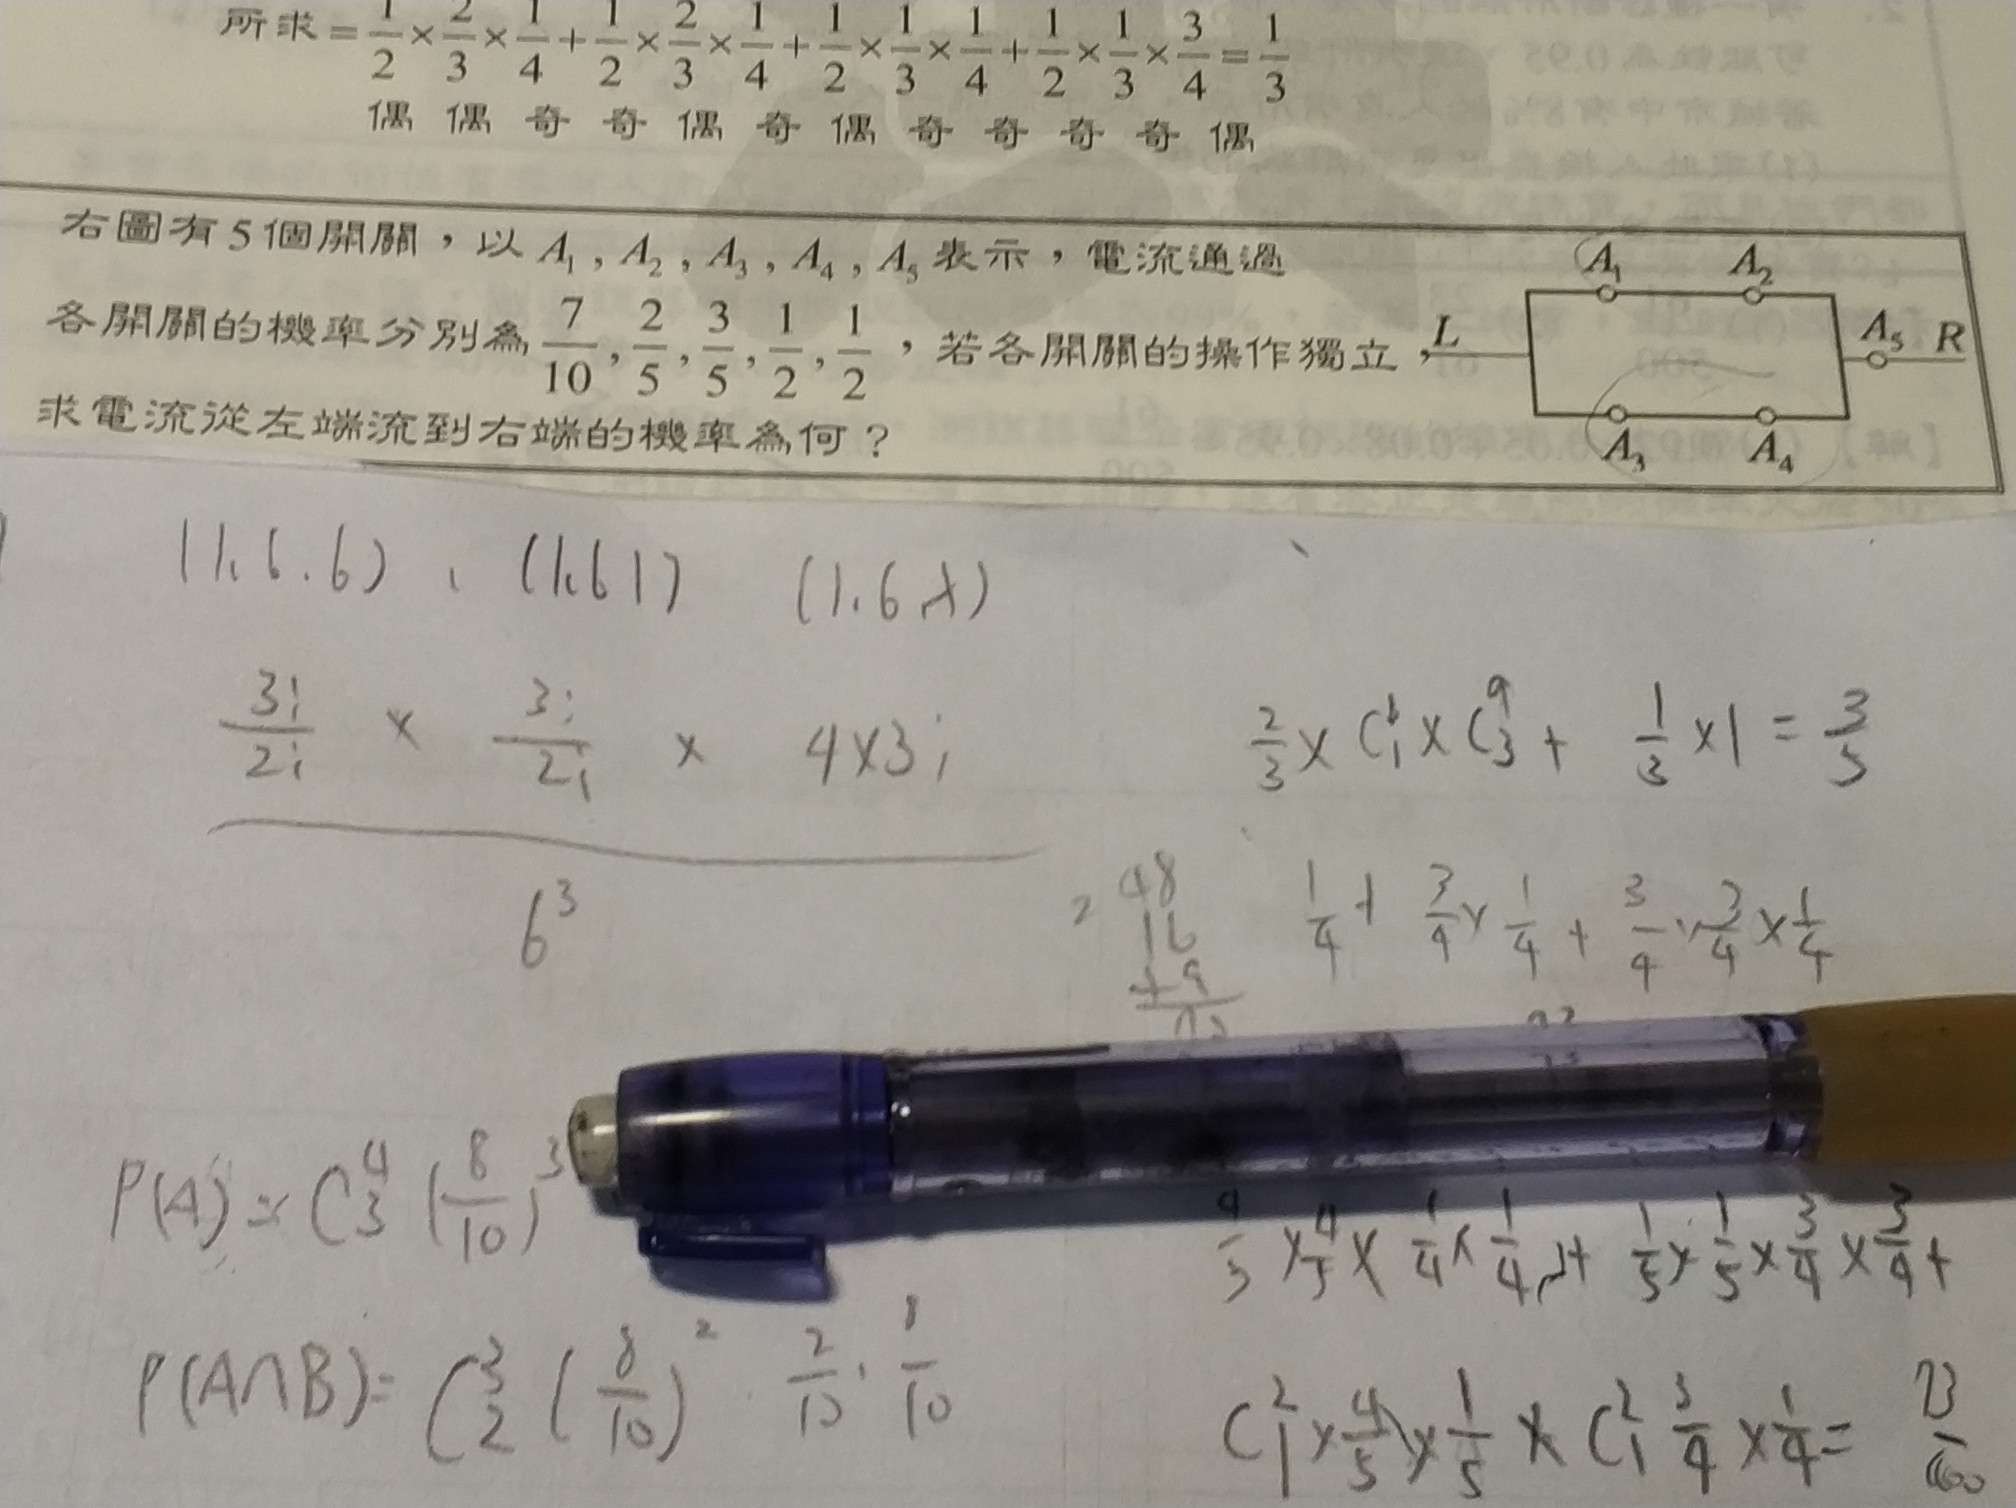 所求=1/2×2/3×1/4+1/2×2/3×1/4+1/2×1/3×1/4+1/2×1/3×3/4=1/3
偶 偶 奇 奇 偶 奇 偶 奇 奇 奇 奇 偶
右圖有5個開關，以A₁,A₂,A₃,A₄,A₅表示，電流通過
各開關的機率分別為7/10,2/5,3/5,1/2,1/2，若各開關的操作獨立，
求電流從左端流到右端的機率為何？
A₁ A₂
L A₅ R
A₃ A₄
(1,6.6)、(1,61) (1.6
3! / 2! × 3! / 2! × 4×3!
6³
2/3 × C × C⁹₃ + 1/3 ×1 = 3/5
48
16
+9
1/4 + 3/4 × 1/4 + 3/4 · 3/4 × 1/4
P(A) = C⁴₃ (8/10)³
×4/5× 1/4× 1/4 + 1/5× 1/5 × 3/4 × 3/4 +
P(A∩B)= C³₂ (8/10)² · 2/10 · 8/10
C²₁ × 4/5 × 1/5 × C²₁ 3/4 × 1/4 =